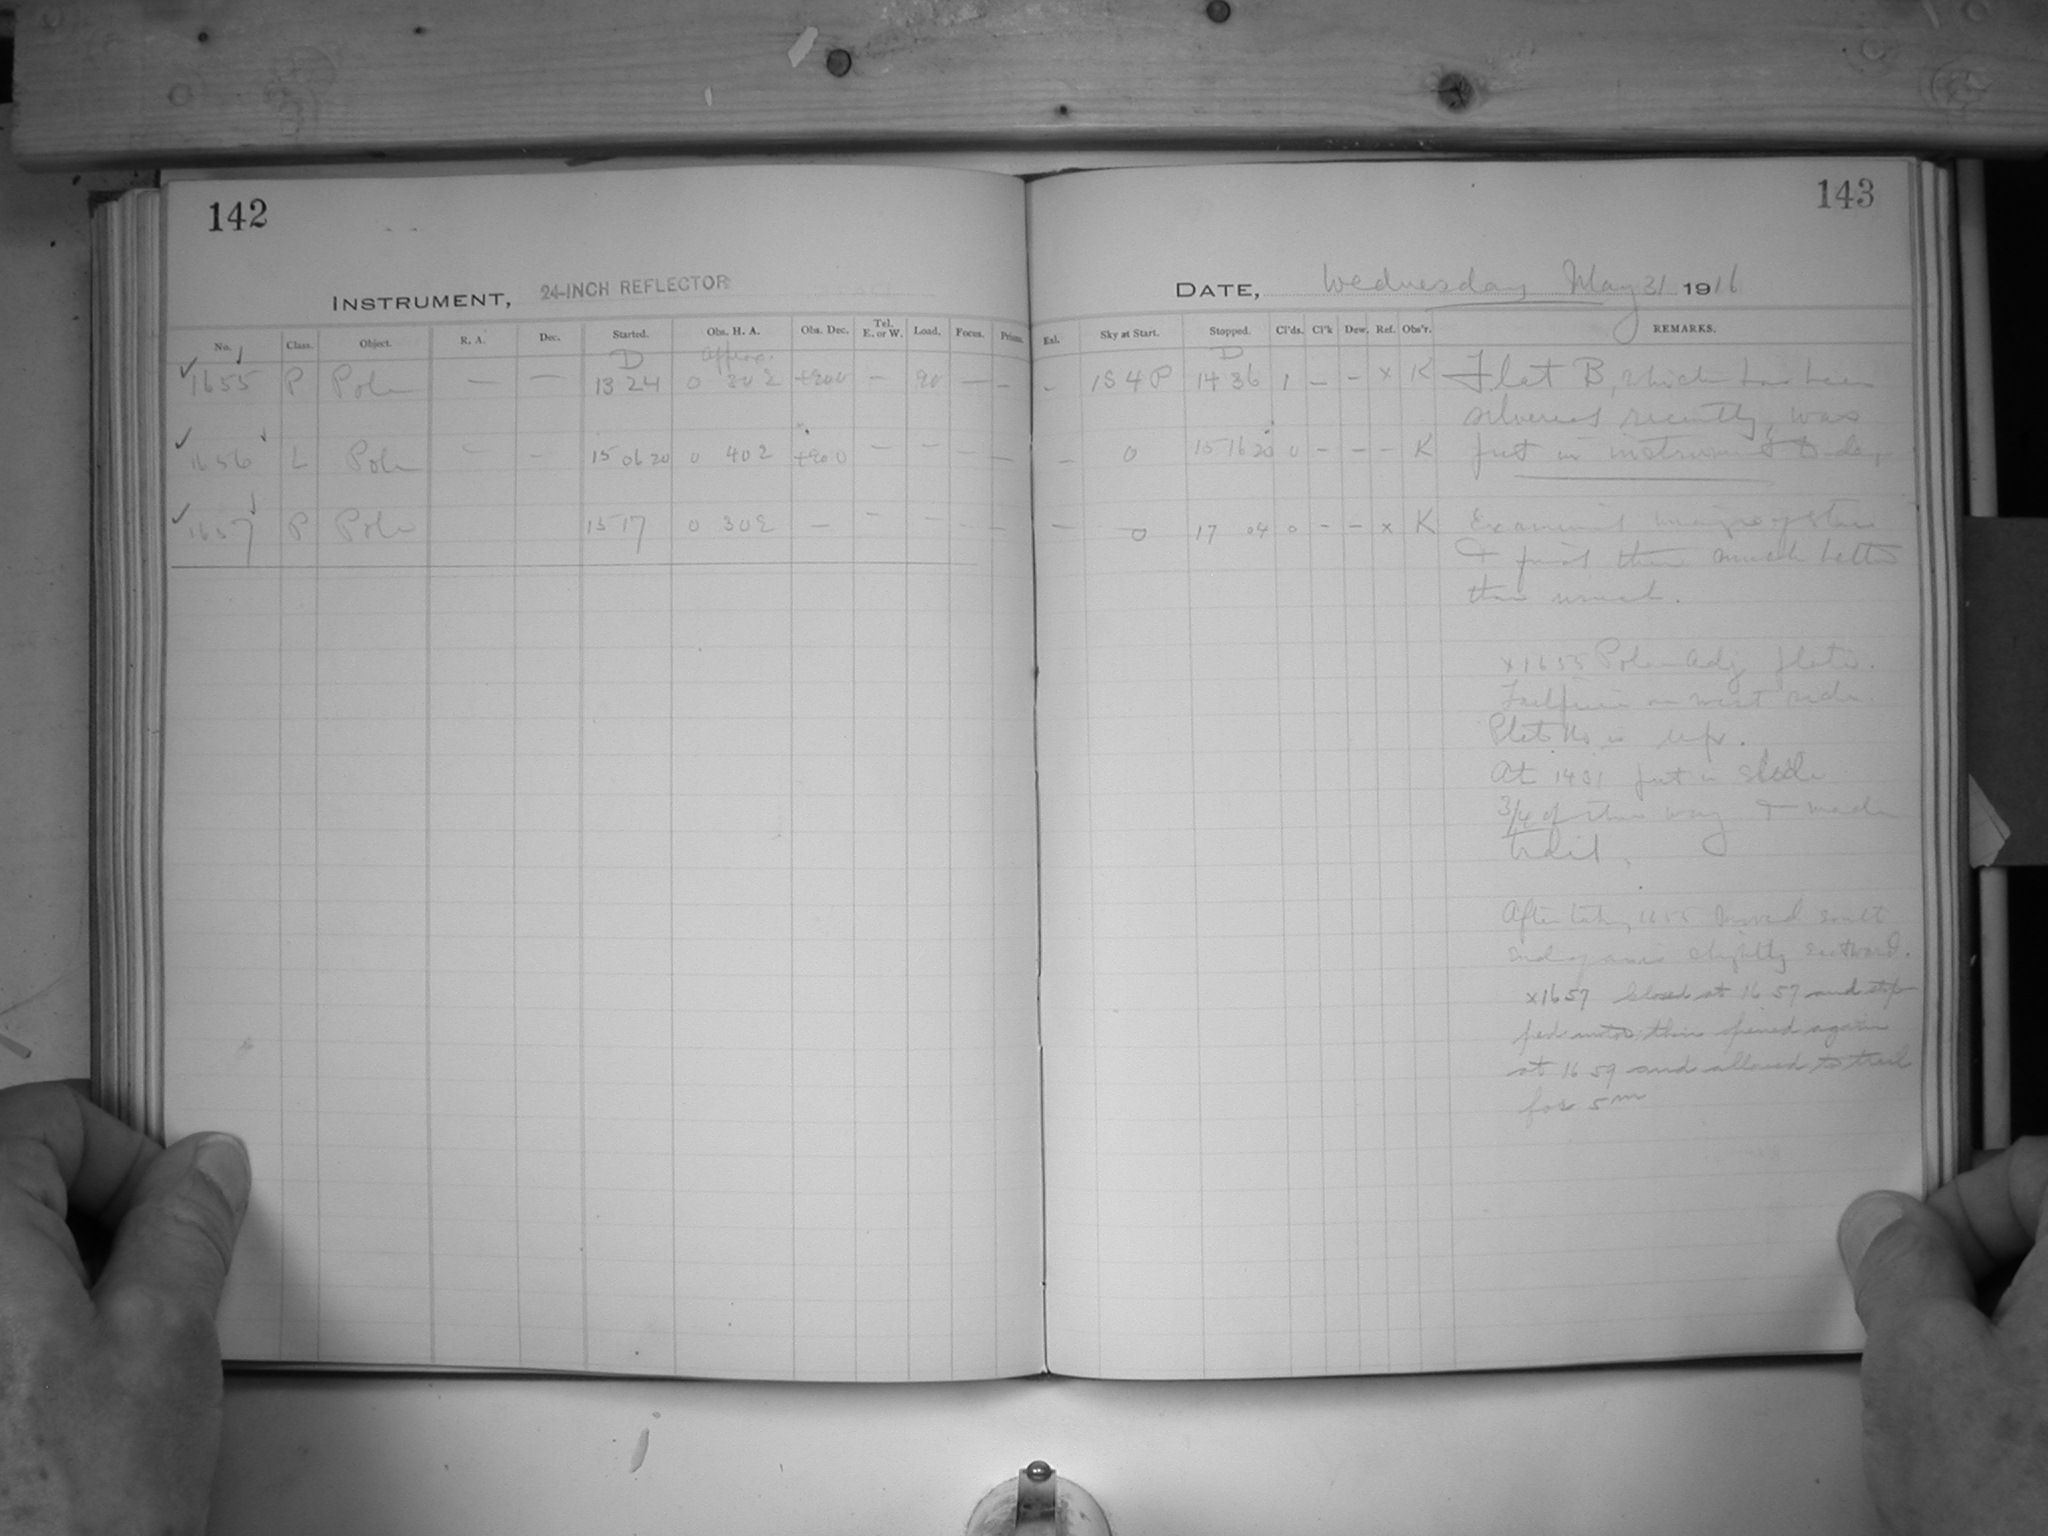 142
INSTRUMENT, 24-INCH REFLECTOR
No. Class. Object. R. A. Dec. Started. Obs. H. A. Obs. Dec. Tel. E. or W. Load. Focus. Prisms.
D
1655 P Pole — — 13 24 0 30 E +900 — 90 — –
1656 L Pole – – 15 06 20 0 40 E +90 0 — — — —
1657 P Pole 15 17 0 30 E — – – – –
143
DATE, Wednesday May 31 1916
Exl. Sky at Start. Stopped. Cl'ds. Cl'k Dew. Ref. Obs'r. REMARKS.
D
– 1S 4 P 14 36 1 – – x K Flat B, which has been
silvered recently, was
– 0 15 16 20 0 – – – K put in instrument to-day.
– 0 17 04 0 – – x K Examined images of stars
& find them much better
than usual.
x1655 Polar Adj plate.
on west side.
Plate No is
At 1431 put in slide
3/4 of the way & made
trail.
After taking 1655 moved south
end of axis slightly eastward.
x1657 closed at 16 57 and stop
ped motor, then opened again
at 16 59 and allowed to trail
for 5m